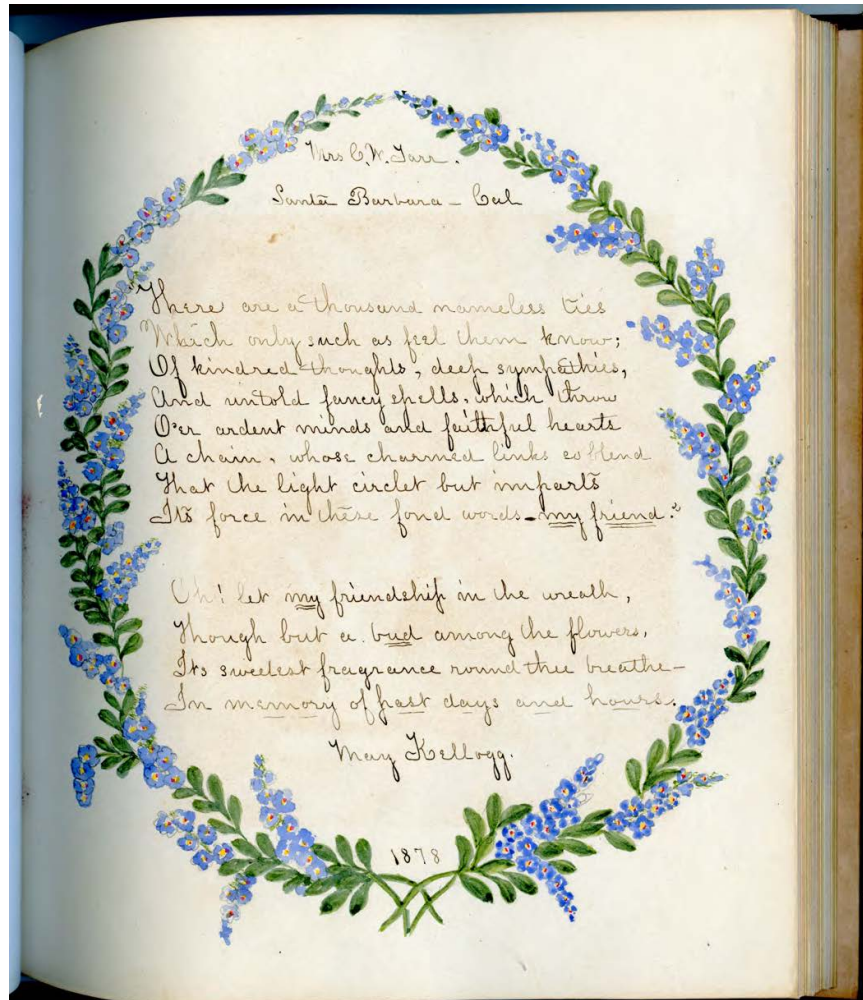 Mrs C. W. Tarr.
Santa Barbara – Cal
There are a thousand nameless ties
Which only such as feel them know;
Of kindred thoughts, deep sympathies,
And untold fancy spells, which throw
O'er ardent minds and faithful hearts
A chain, whose charmed links so blend
That the light circlet but imparts
Its force in these fond words – my friend."
Oh! let my friendship in the wreath,
Though but a bud among the flowers,
Its sweetest fragrance round thee breathe –
In memory of past days and hours.
May Kellogg.
1878